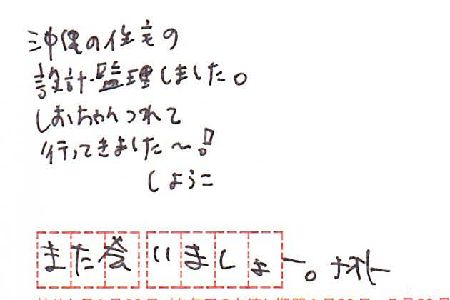 沖縄の住宅の
設計・監理しました。
しおちゃんつれて
行ってきました〜!
しょうこ
また会いましょー。